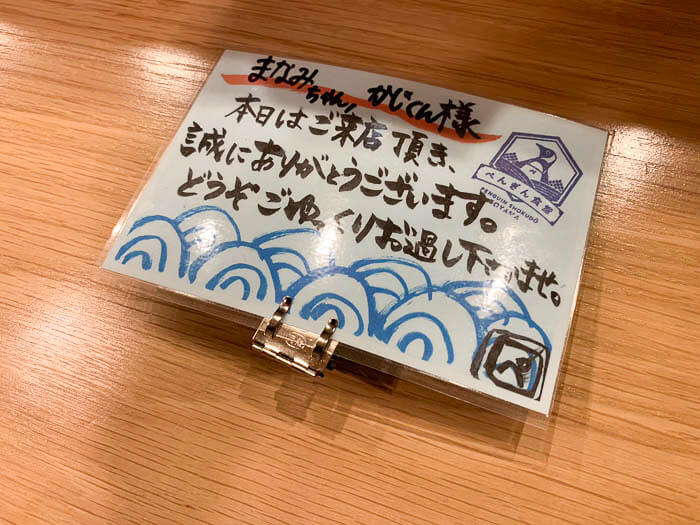 まなみちゃん かじくん様
本日はご来店頂き、
誠にありがとうございます。
どうぞごゆっくりお過し下さいませ。
ぺんぎん食堂
PENGUIN SHOKUDO
OYAMA
ペ